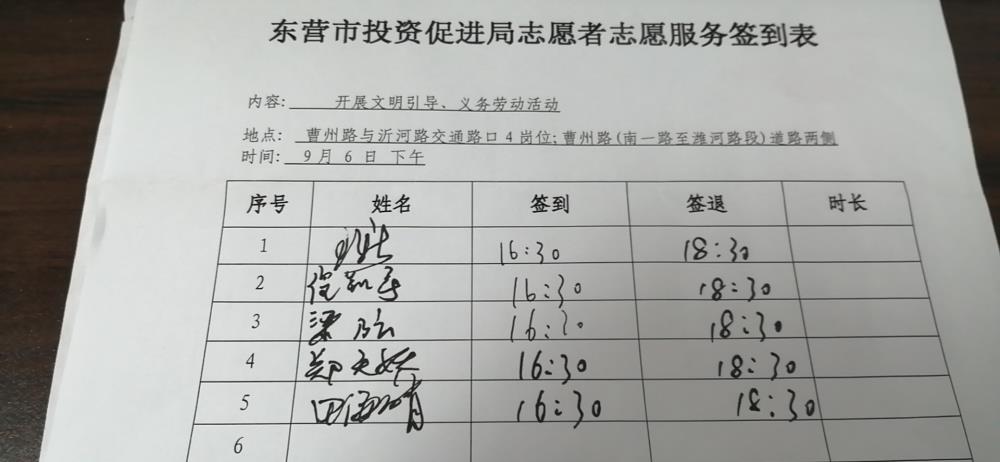 东营市投资促进局志愿者志愿服务签到表
内容: 开展文明引导、义务劳动活动
地点: 曹州路与沂河路交通路口4岗位;曹州路(南一路至潍河路段)道路两侧
时间: 9月6日 下午
序号 姓名 签到 签退 时长
1 16:30 18:30
2 16:30 18:30
3 梁 16:30 18:30
4 郑 16:30 18:30
5 田 16:30 18:30
6